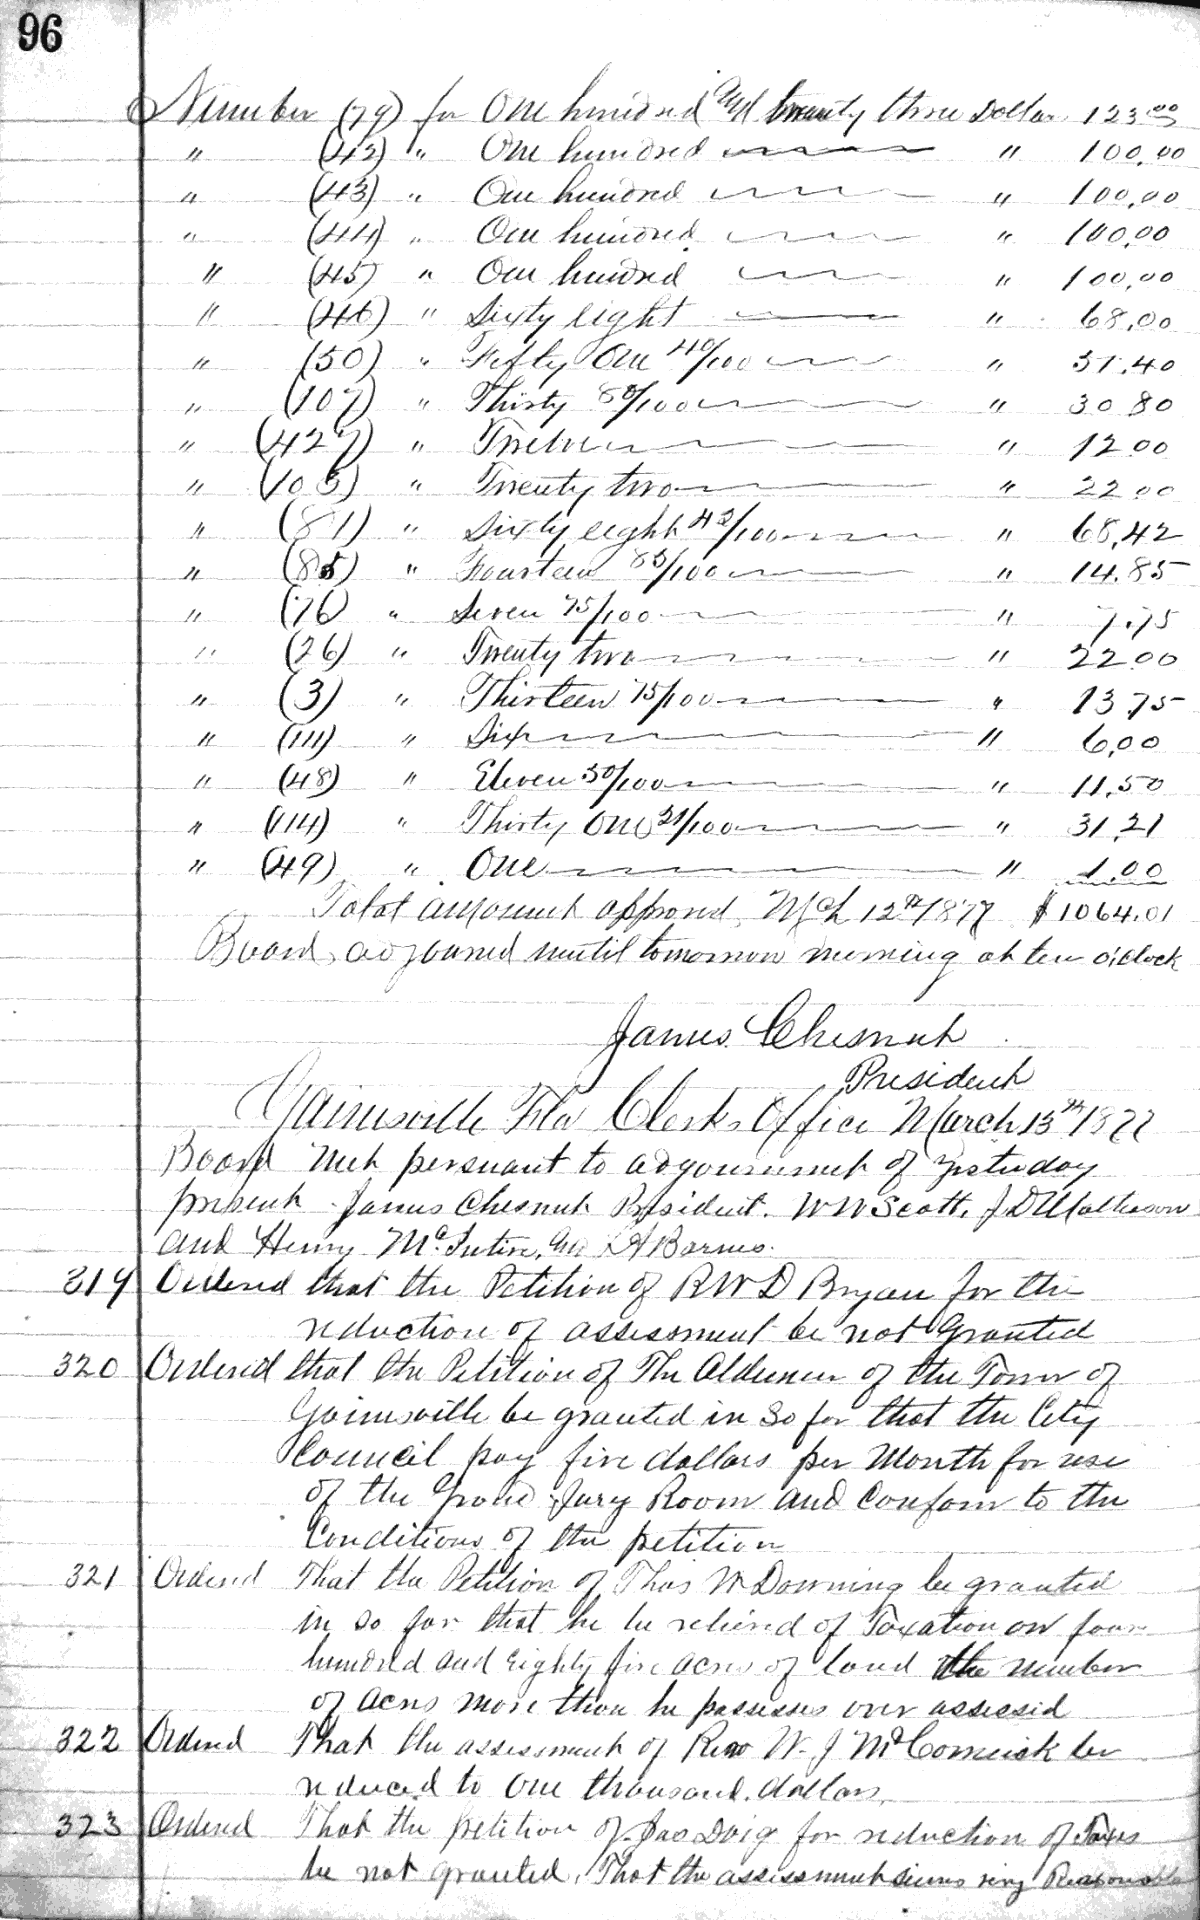 96
Number (79) for One hundred and twenty three Dollars 123.00
" (42) " One hundred " 100,00
" (43) " One hundred " 100,00
" (44) " One hundred " 100,00
" (45) " One hundred " 100,00
" (46) " Sixty eight " 68,00
" (50) " Fifty One 40/100 " 51.40
" (107) " Thirty 80/100 " 30 80
" (427) " Twelve " 12 00
" (103) " Twenty two " 22 00
" (81) " Sixty eight 42/100 " 68,42
" (85) " Fourteen 85/100 " 14.85
" (76) " Seven 75/100 " 7.75
" (26) " Twenty two " 22 00
" (3) " Thirteen 75/100 " 13.75
" (111) " Six " 6,00
" (48) " Eleven 50/100 " 11,50
" (114) " Thirty One 21/100 " 31,21
" (49) " One " 1.00
Total amount approved Mch 12th 1877 $1064.01
Board adjourned until tomorrow morning at ten o'clock
James Chesnut
President
Gainesville Fla Clerks Office March 13th 1877
Board Met persuant to adjournment of yesterday
present James Chesnut President. W W Scott, J D Matheson
and Henry McIntire, H Barnes.
319 Ordered that the Petition of R W D Bryan for the
reduction of assessment be not granted
320 Ordered that the Petition of The Aldermen of the Town of
Gainesville be granted in so far that the City
Council pay five dollars per Month for use
of the Grand Jury Room and Conform to the
Conditions of the petition
321 Ordered That the Petition of Thos W Downing be granted
in so far that he be relieved of Taxation on four
hundred and Eighty five acres of land the number
of acres more than he possesses over assessed
322 Ordered That the assessment of Rev W. J McCormick be
reduced to One thousand. dollars,
323 Ordered That the petition of Jas Doig for reduction of Taxes
be not granted. That the assessment seems very Reasonable